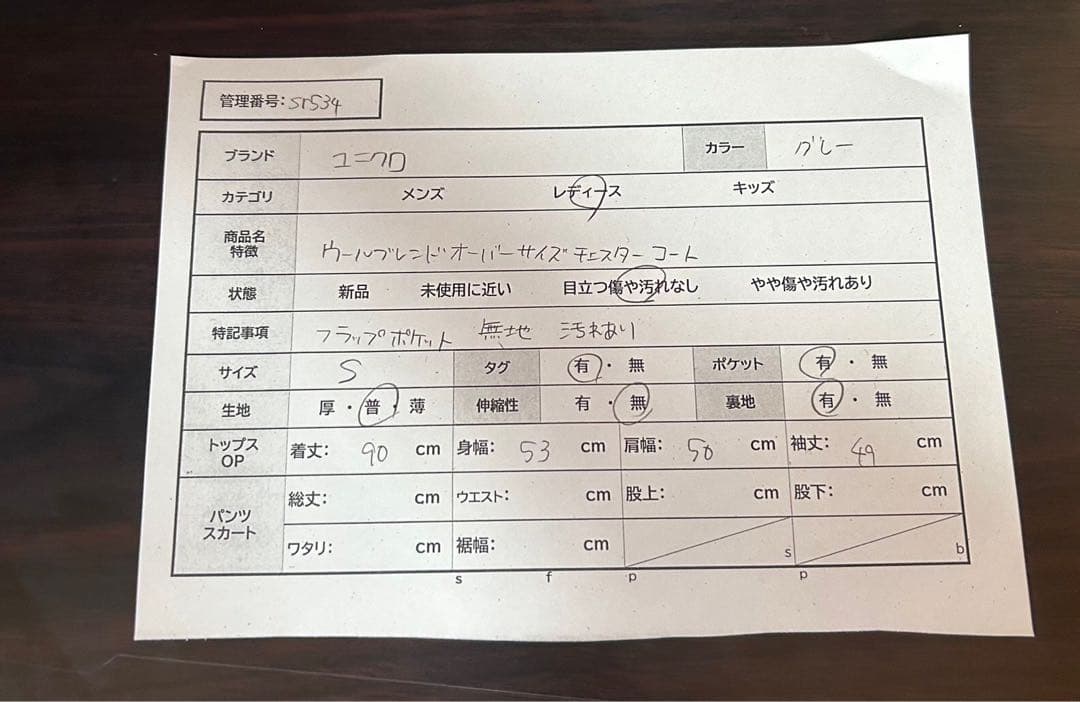 管理番号: sr534
ブランド ユニクロ カラー グレー
カテゴリ メンズ レディース キッズ
商品名
特徴 ウールブレンドオーバーサイズチェスターコート
状態 新品 未使用に近い 目立つ傷や汚れなし やや傷や汚れあり
特記事項 フラップポケット 無地 汚れあり
サイズ S タグ 有・無 ポケット 有・無
生地 厚・普・薄 伸縮性 有・無 裏地 有・無
トップス
OP 着丈: 90 cm 身幅: 53 cm 肩幅: 50 cm 袖丈: 49 cm
パンツ
スカート 総丈: cm ウエスト: cm 股上: cm 股下: cm
ワタリ: cm 裾幅: cm s b
s f p p